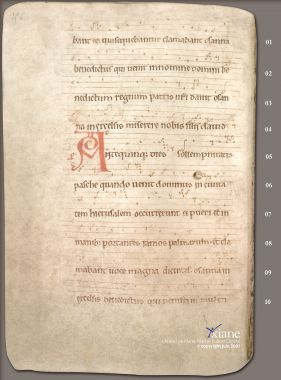 bant & quisequebantur clamabant osanna
benedictus qui uenit innomine domini be
nedictum regnum patris nri dauit osan
na in excelsis miserere nobis filii dauid
Ante quinq; dies sollempnitatis
pasche quando uenit dominus in ciuita
tem hierusalem occurrerunt ei pueri & in
manib; portantes ramos palmarum & cla
mabant uoce magna dicentes osanna in
excelsis benedictus qui uenisti in
01
02
03
04
05
06
07
08
09
10
Xiane
© copyright juin 2001